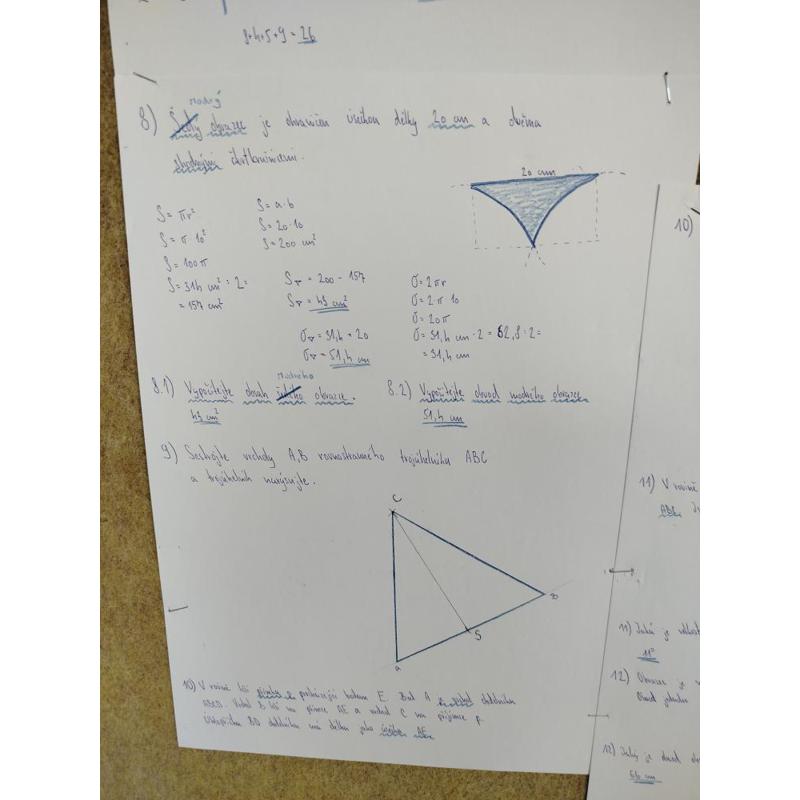 8+4+5+9 = 26
modrý
8) Šedý obrazec je ohraničen úsečkou délky 20 cm a dvěma
shodnými čtvrtkružnicemi.
20 cm
S = πr²
S = π 10²
S = 100π
S = 314 cm² : 2 =
= 157 cm²
S = a · b
S = 20 · 10
S = 200 cm²
= 200 - 157
= 43 cm²
= 31,4 + 20
= 51,4 cm
O = 2πr
O = 2 π 10
O = 20π
O = 31,4 cm · 2 = 62,8 : 2 =
= 31,4 cm
modrého
8.1) Vypočítejte obsah šedého obrazce.
43 cm²
8.2) Vypočítejte obvod modrého obrazce
51,4 cm
9) Sestrojte vrcholy A,B rovnostranného trojúhelníku ABC
a trojúhelník narýsujte.
C
B
S
A
10) V rovině leží přímka p procházející bodem E. Bod A je vrchol obdélníku
ABCD. Vrchol B leží na přímce AE a vrchol C na přímce p.
Úhlopříčka BD obdélníku má délku jako úsečka AE.
10)
11) V rovině
ABC.
11) Jaká je velikost
11°
12) Obrazec je
Obvod jednoho
12) Jaký je obvod
56 cm